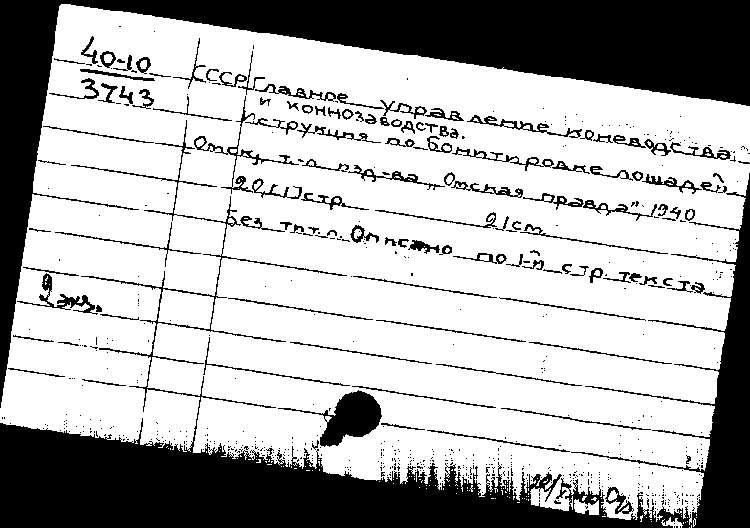 40-10
3743
СССР. Главное управление коневодства
и коннозаводства.
Иструкция по бонитировке лошадей.
Омск, т-п изд-ва „Омская правда", 1940
20,[1] стр. 21 см.
Без тит. л. Описано по 1-й стр. текста.
2 экз.